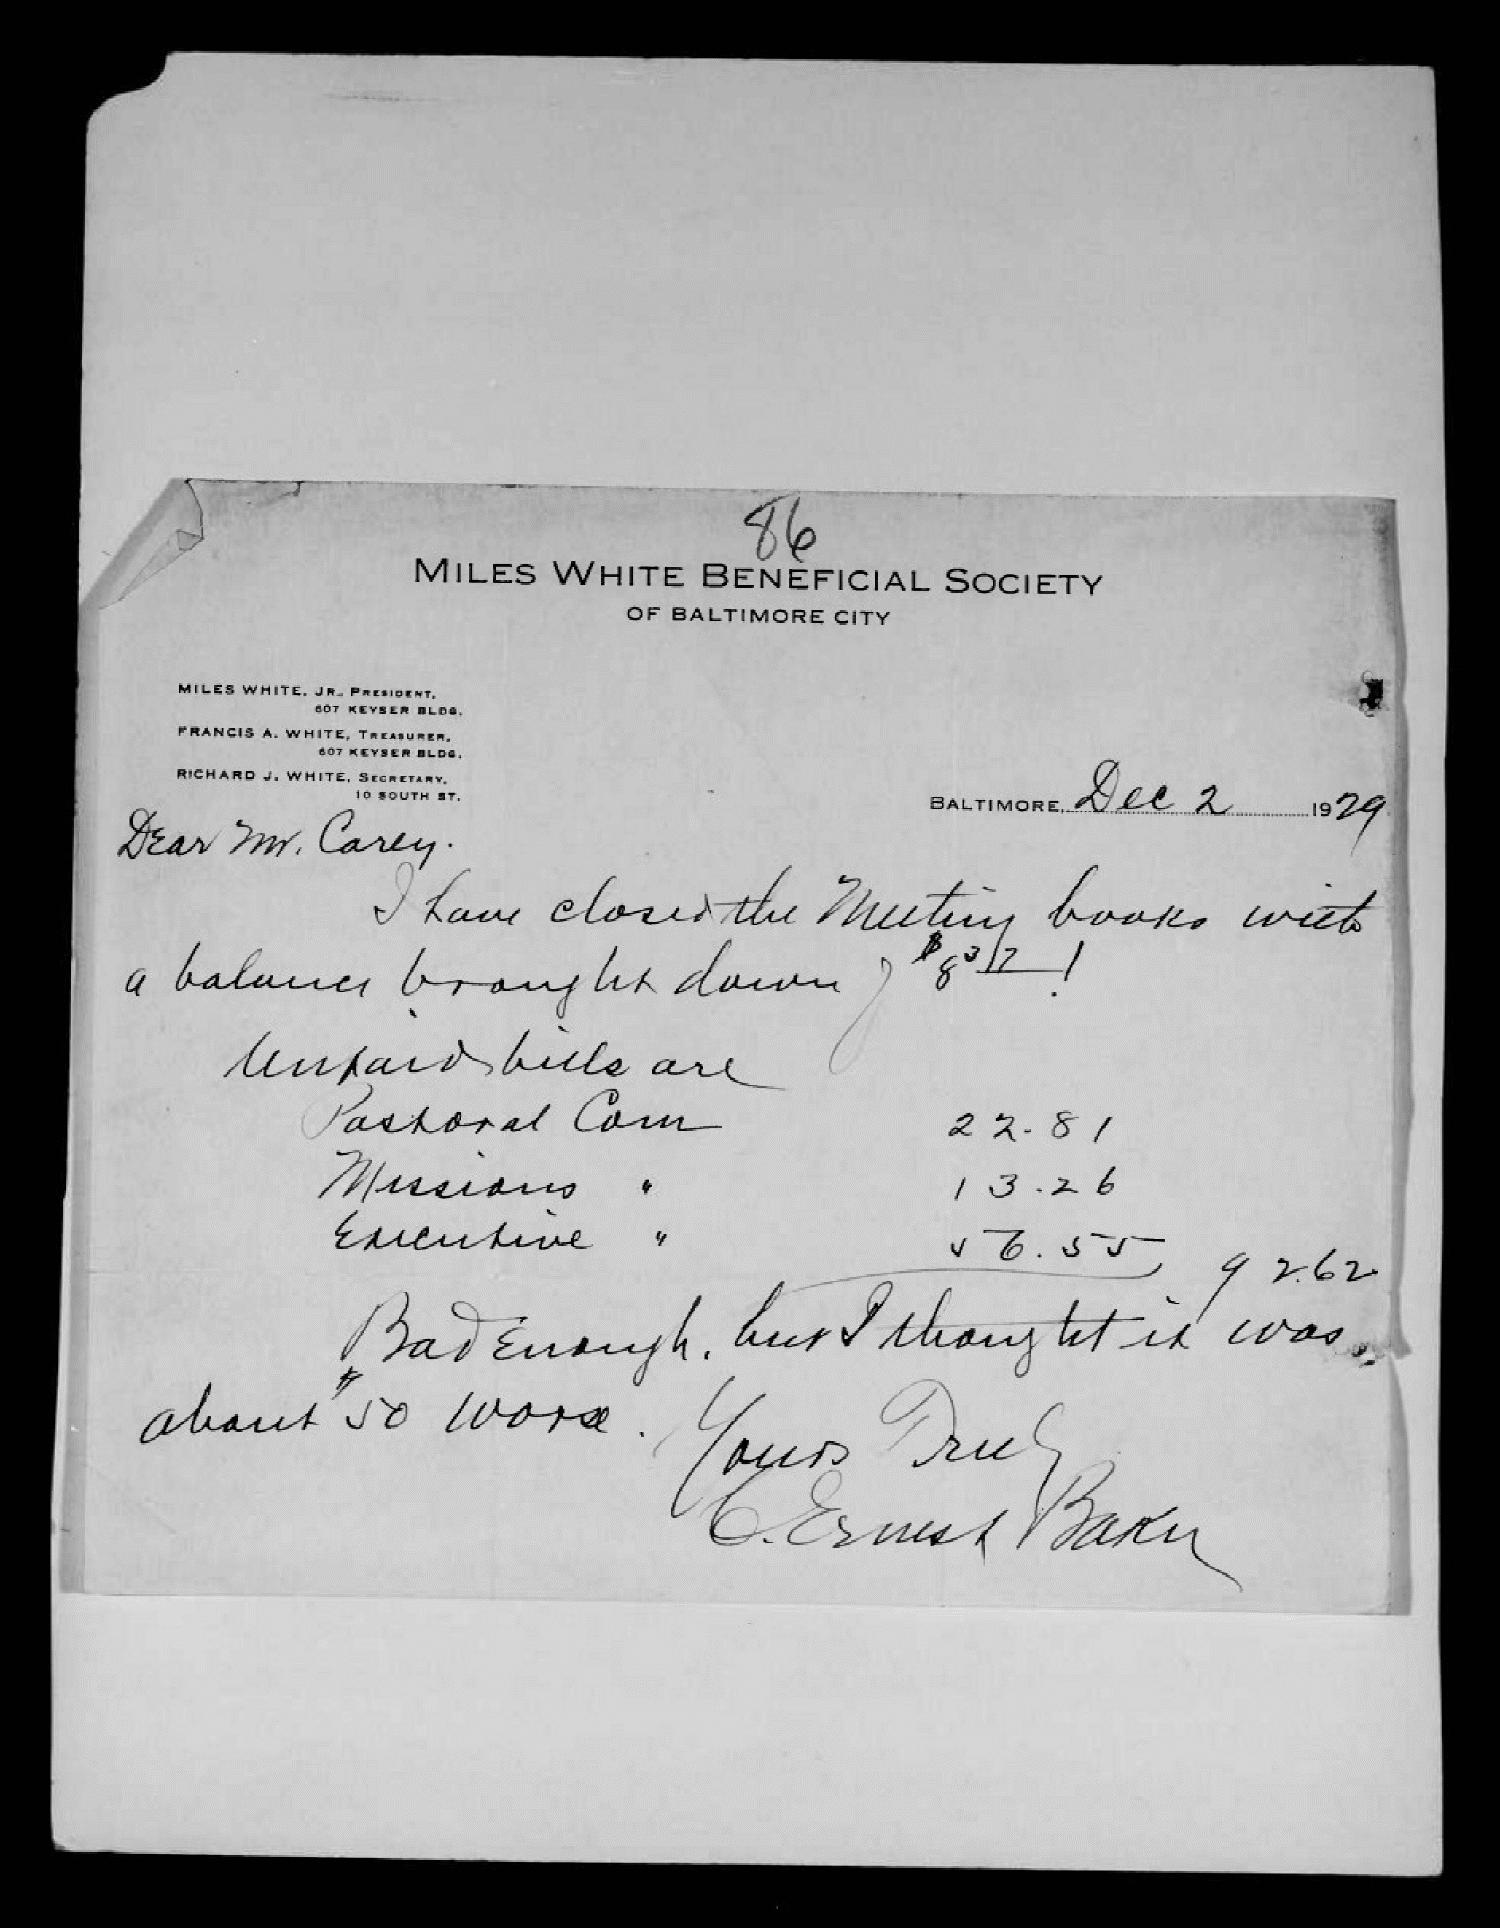 86
MILES WHITE BENEFICIAL SOCIETY
OF BALTIMORE CITY
MILES WHITE, JR., PRESIDENT,
607 KEYSER BLDG.
FRANCIS A. WHITE, TREASURER,
607 KEYSER BLDG.
RICHARD J. WHITE, SECRETARY,
10 SOUTH ST.
BALTIMORE, Dec 2 1929
Dear Mr. Carey.
I have closed the Meeting books with
a balance brought down of $8 37 !
Unpaid bills are
Pastoral Com 22.81
Missions " 13.26
Executive " 56.55 92.62
Bad Enough, but I thought it was
about $50 worse.
Yours Truly
C. Ernest Baker